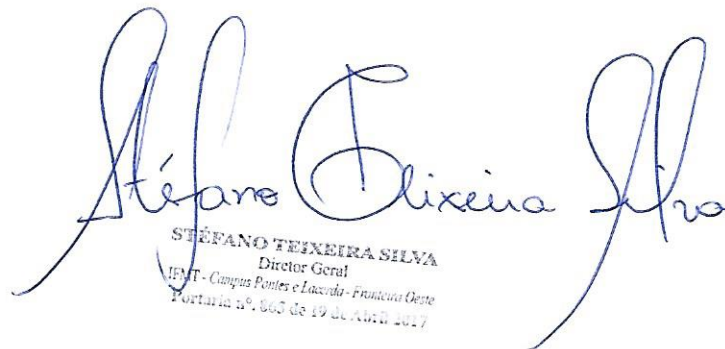 Stéfano Teixeira Silva
STÉFANO TEIXEIRA SILVA
Diretor Geral
IFMT - Campus Pontes e Lacerda - Fronteira Oeste
Portaria nº. 865 de 19 de Abril 2017